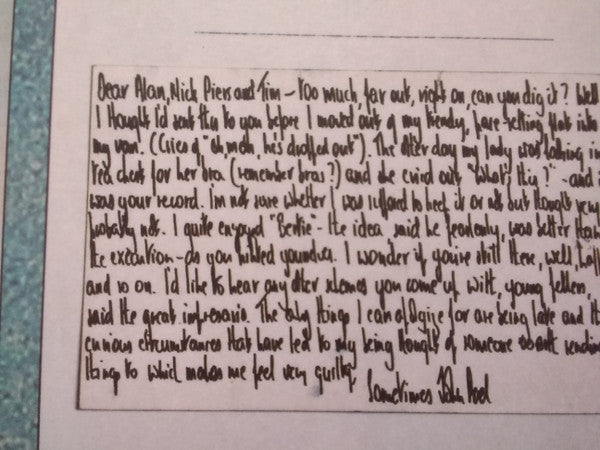 Dear Alan, Nick Piers and Tim - Too much, far out, right on, can you dig it? Well
I thought I'd sent this to you before I moved out of my trendy, pace-setting flat into
my van. (Cries of "oh man, he's dropped out"). The other day my lady was looking in
tea chest for her bra (remember bras?) and she cried out "what's this?" - and it
was your record. I'm not sure whether I was supposed to keep it or not but thought very
probably not. I quite enjoyed "Bertie" - the idea said he fearlessly, was better than
the execution - do you
I wonder if you're still there, well, happy
and so on. I'd like to hear any other schemes you come up with, young fellers,
said the great impresario. The only things I can apologise for are being late and the
curious circumstances that have led to my being thought of someone
things to which makes me feel very guilty.
Sometimes John Peel